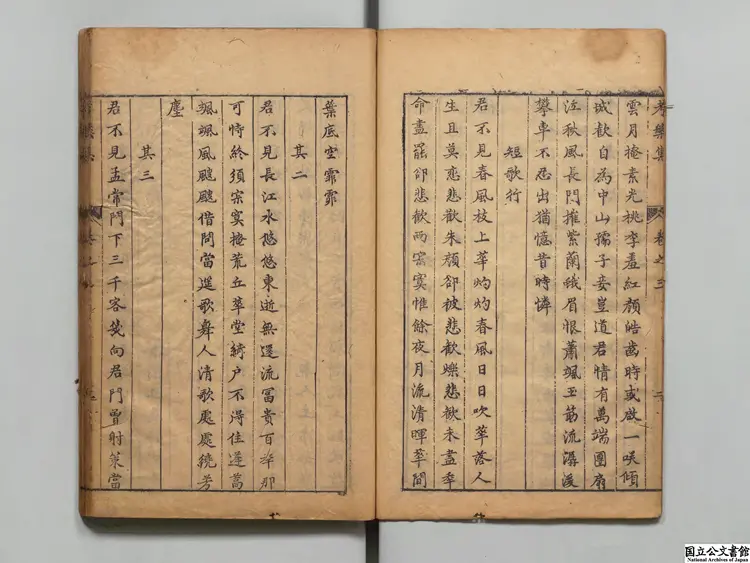 考槃集 卷之三 二
雲月掩素光桃李羞紅顏皓齒時或啟一咲傾
城歡自為中山孺子妾豈道君情有萬端團扇
泣秋風長門摧紫蘭蛾眉恨蕭颯玉筯流潺湲
攀車不忍出猶憶昔時憐
短歌行
君不見春風枝上華灼灼春風日日吹華落人
生且莫恋悲歡朱顏卻被悲歡爍悲歡未盡年
命盡罷卻悲歡兩寂寞惟餘夜月流清暉華間
葉底空霏霏
其二
君不見長江水悠悠東逝無還流冨貴百年那
可恃終須宗寞掩荒丘華堂綺户不得住蓬蒿
颯颯風颼颼借問當筵歌舞人清歌處處繞芳
塵
其三
君不見孟常門下三千客幾向君門曾射策當
国立公文書館
National Archives of Japan